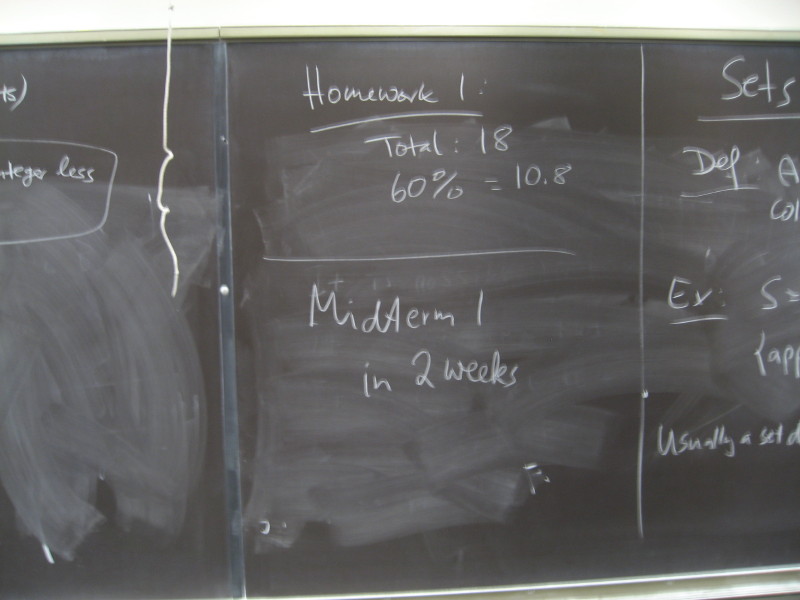 ts)
nteger less
Homework 1:
Total: 18
60% = 10.8
Midterm 1
in 2 weeks
Sets
Def: A
col
Ex: S=
{app
Usually a set d